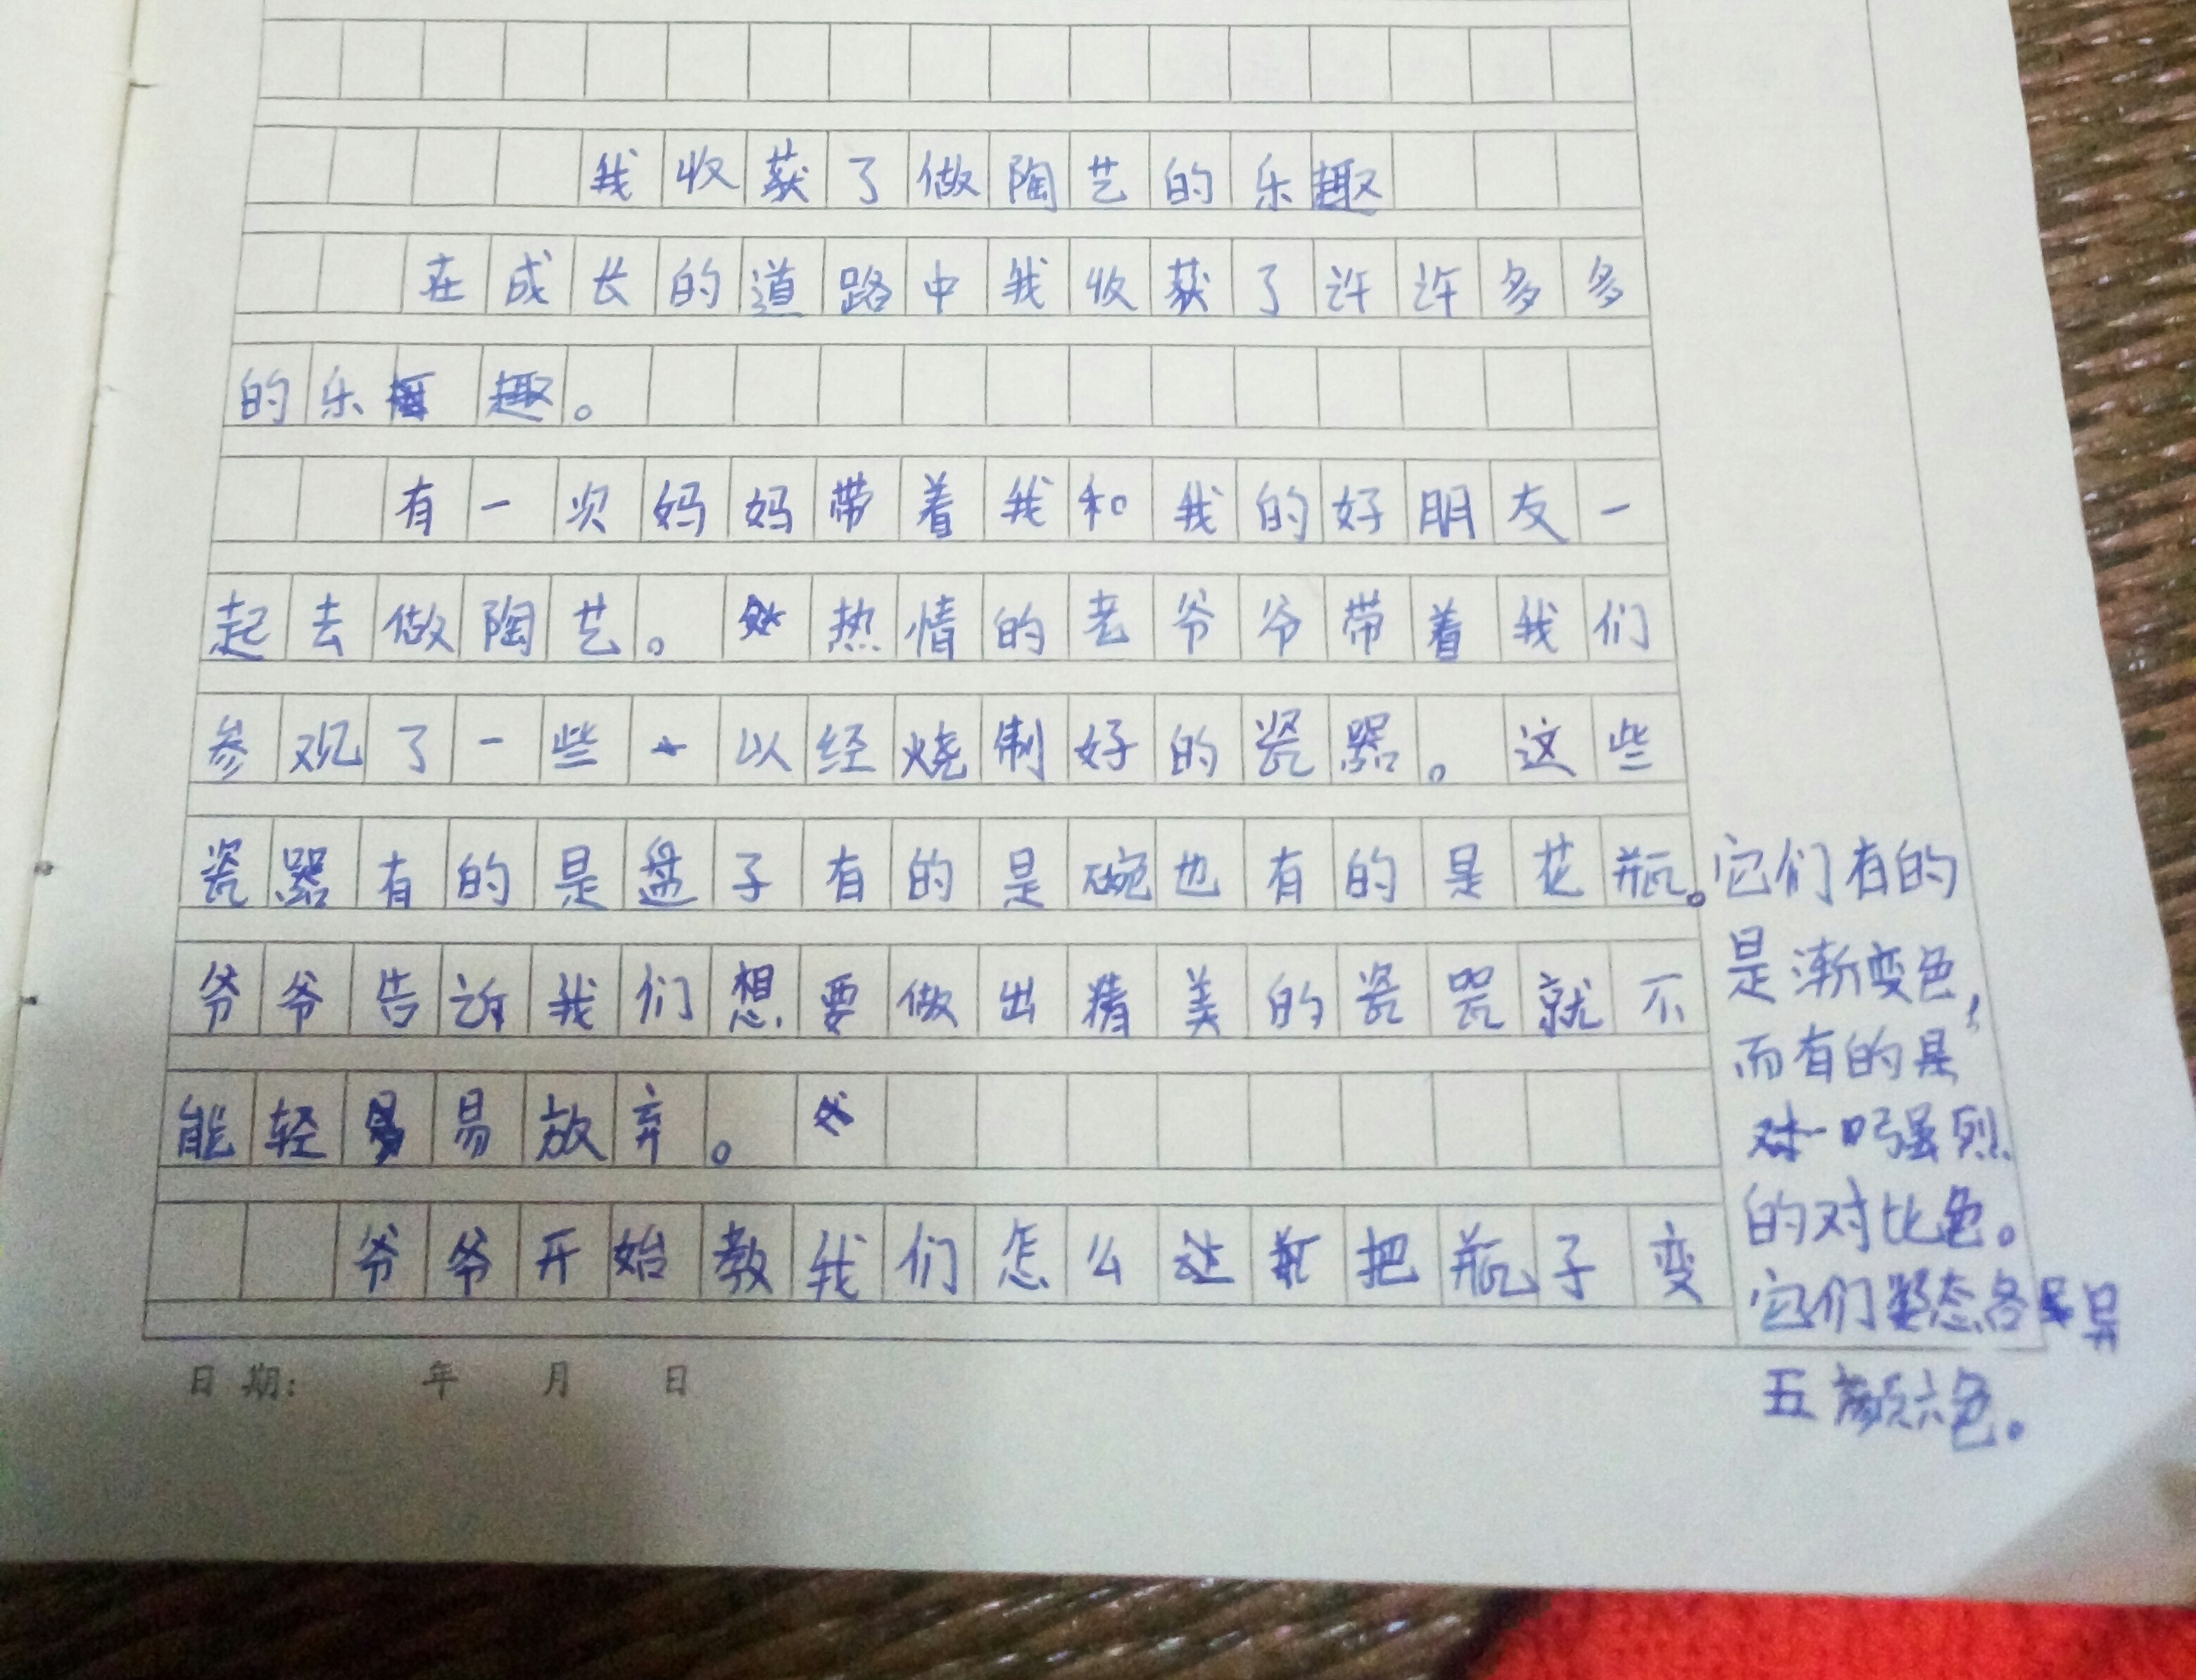 我收获了做陶艺的乐趣
在成长的道路中我收获了许许多多
的乐趣。
有一次妈妈带着我和我的好朋友一
起去做陶艺。热情的老爷爷带着我们
参观了一些以经烧制好的瓷器。这些
瓷器有的是盘子有的是碗也有的是花瓶。它们有的
是渐变色,
而有的是
强烈
的对比色。
它们形态各异
五颜六色。
爷爷告诉我们想要做出精美的瓷器就不
能轻易放弃。
爷爷开始教我们怎么把瓶子变
日期: 年 月 日